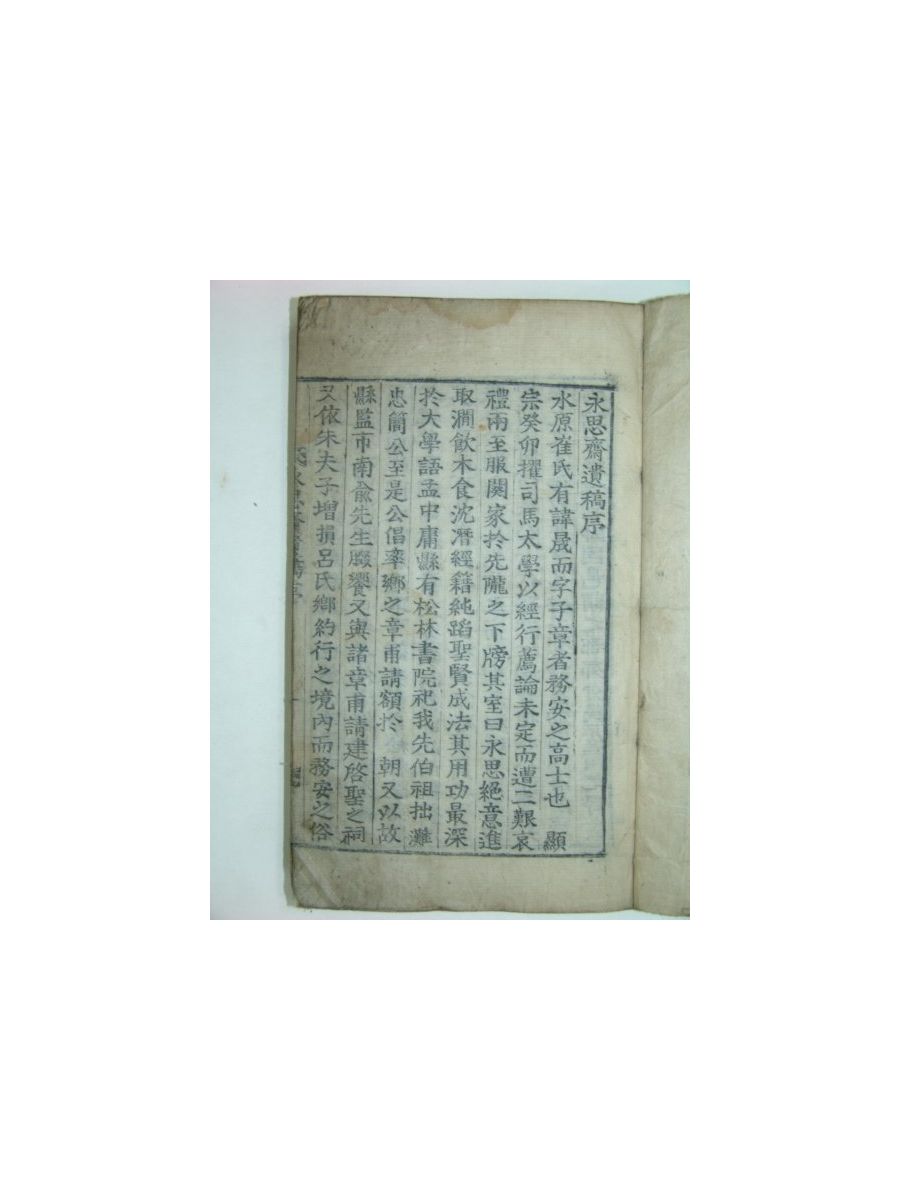 永思齋遺稿序
水原崔氏有諱晟而字子章者務安之高士也 顯
宗癸卯擢司馬太學以經行薦論未定而遭二艱哀
禮兩至服闋家於先隴之下牓其室曰永思絶意進
取澗飮木食沈潛經籍純蹈聖賢成法其用功最深
於大學語孟中庸縣有松林書院祀我先伯祖拙灘
忠簡公至是公倡率鄕之章甫請額於 朝又以故
縣監市南兪先生腏饗又與諸章甫請建啓聖之祠
又依朱夫子增損呂氏鄕約行之境內而務安之俗
永思齋遺稿序